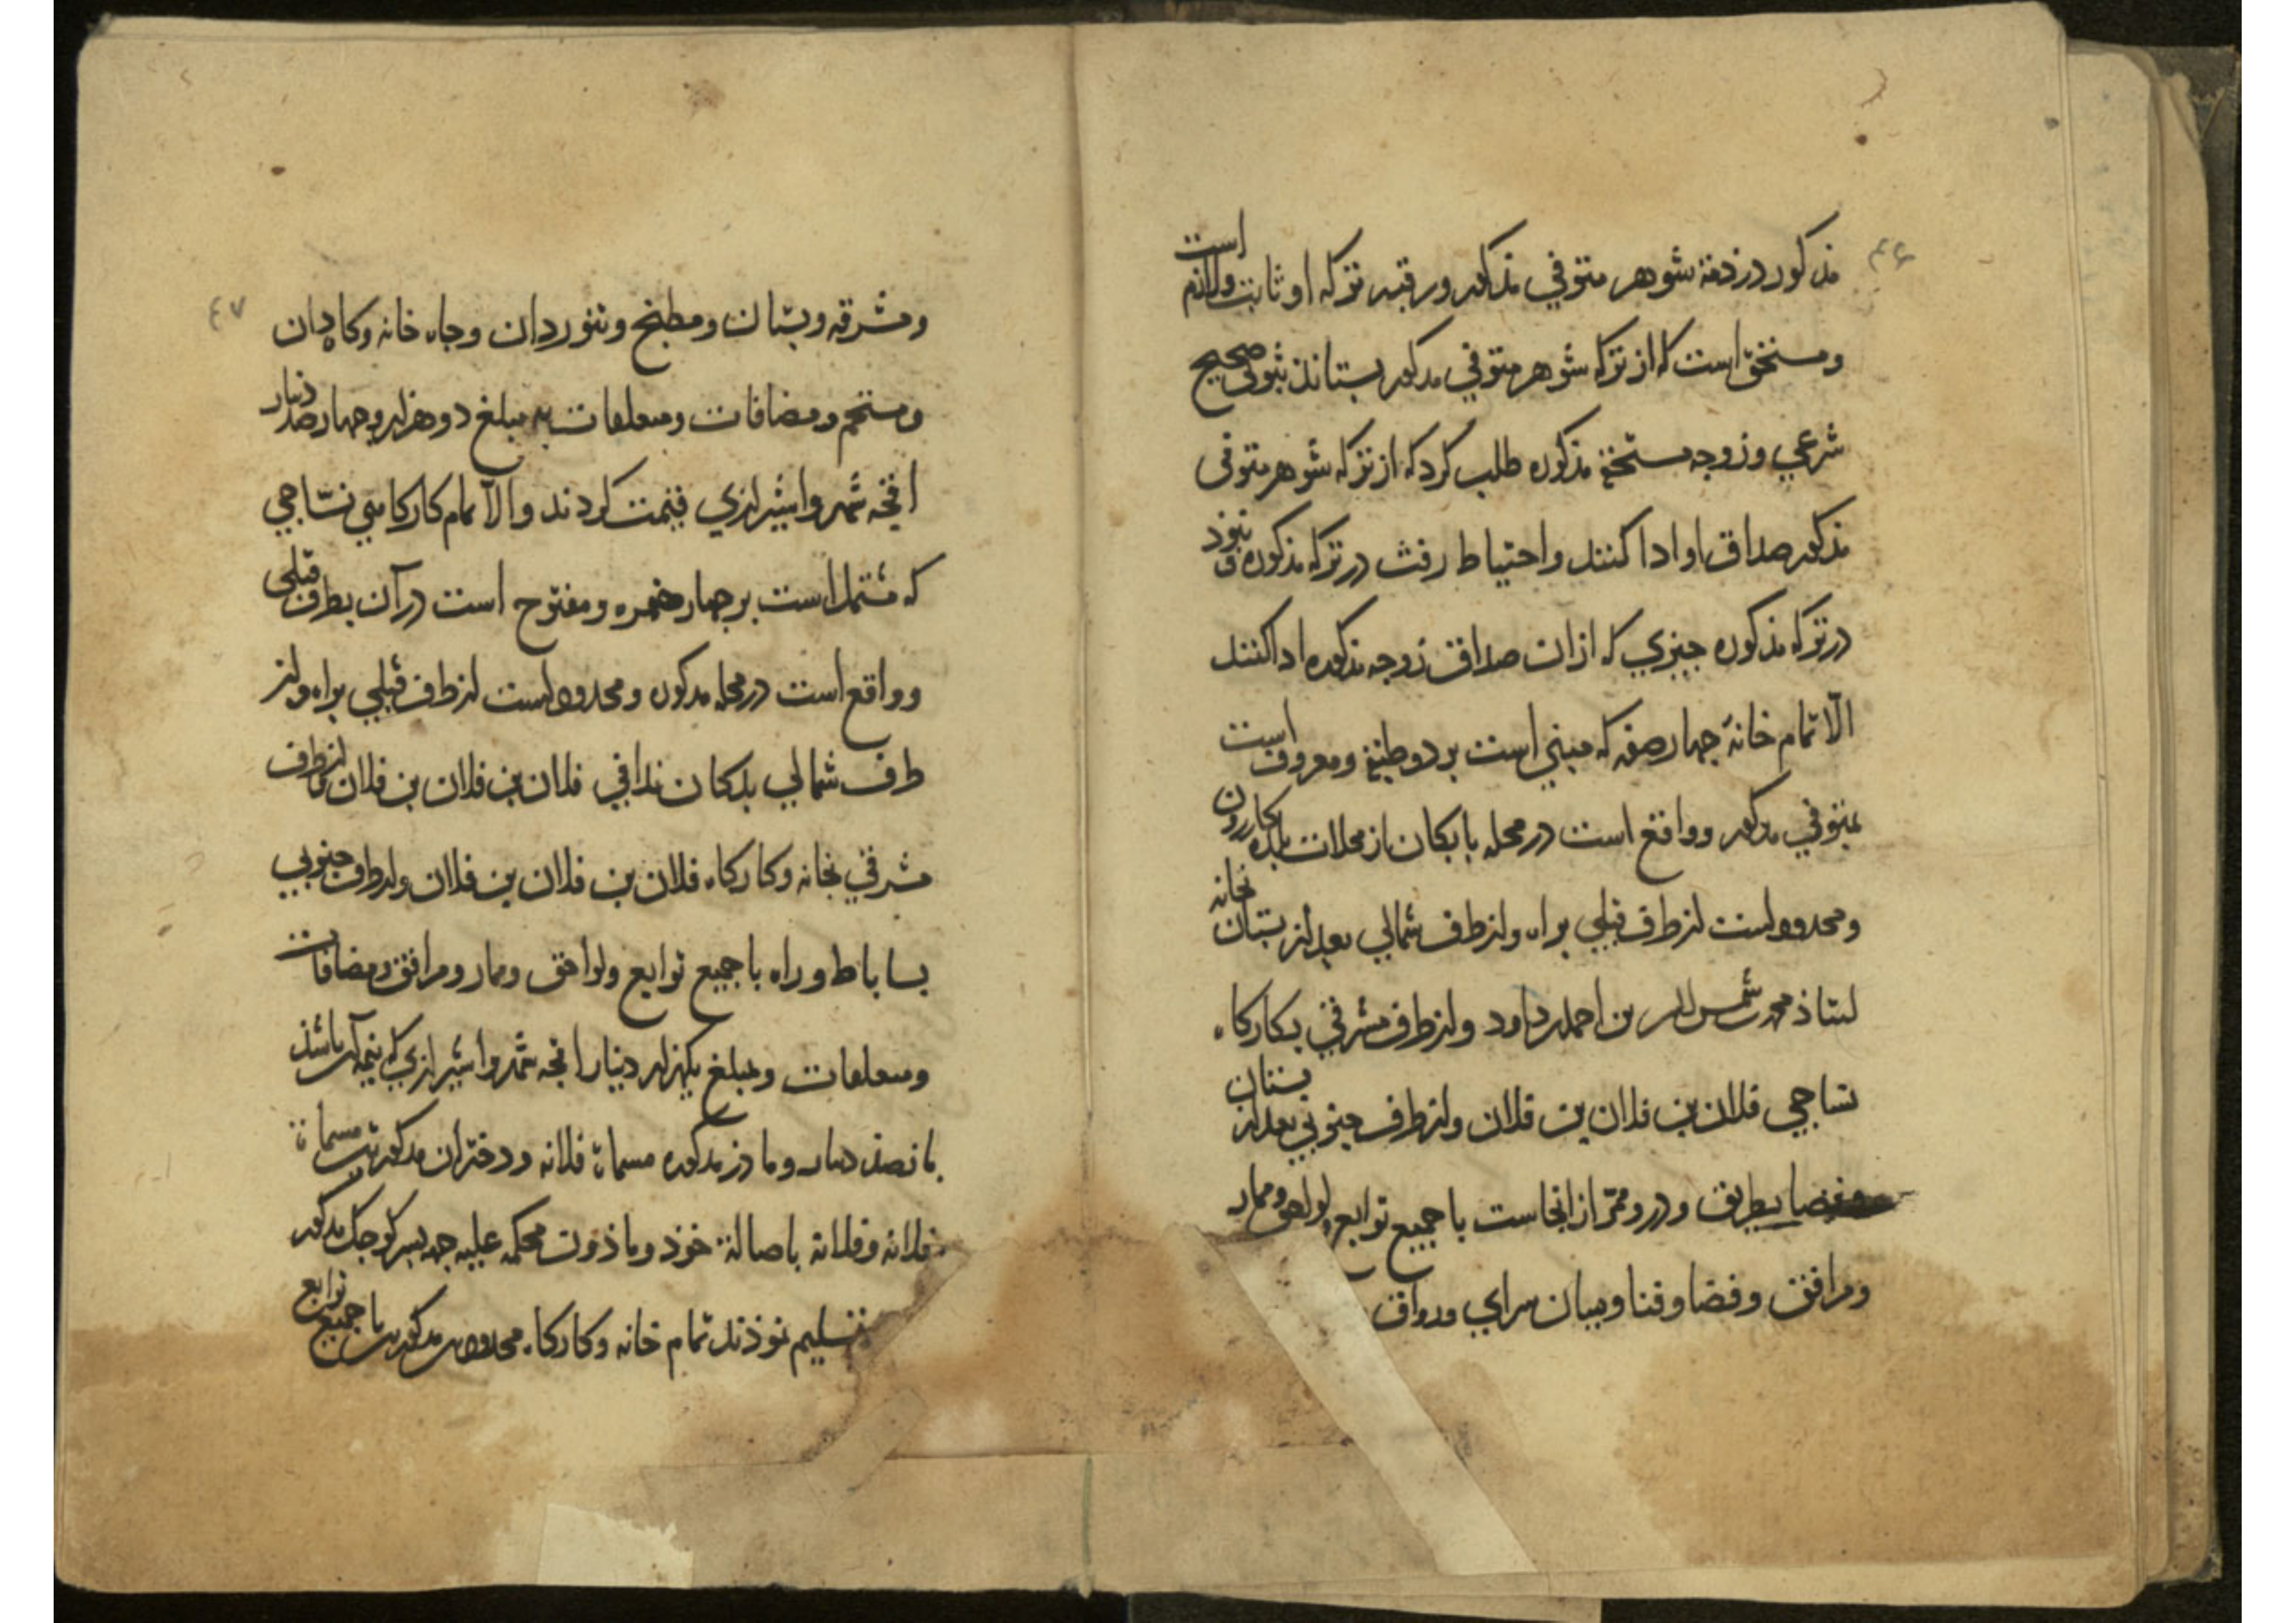 ۴۶
مذکور در ذمهٔ شوهر متوفی مذکور و رقبهٔ ترکه او ثابت و لازم است
و مستحق است که از ترکه شوهر متوفی مذکور بستاند ثبوتی صحیح
شرعی و زوجه مستحقهٔ مذکوره طلب کرد که از ترکه شوهر متوفی
مذکور صداق او ادا کنند و احتیاط رفت در ترکه مذکوره و نبوذ
در ترکه مذکوره جیزی که از ان صداق زوجه مذکوره ادا کنند
الّا تمام خانهٔ جهار صفه که مبنی است بر دو طبقه و معروف است
بمتوفی مذکور و واقع است در محله بابکان از محلات بلده کازرون
و محدود است از طرف قبلی براه و از طرف شمالی بعد از بستان بخانه
استاذ محمد شمس الدین بن احمد داود و از طرف مشرقی بکارکاه
نساجی فلان بن فلان بن فلان و از طرف جنوبی بعد از بستان
بطریق و در و ممرّ از انجاست با جمیع توابع و لواحق و ممار
و مرافق و فضا و فنا و میان سرای و رواق
۴۷
و مشرقه و بستان و مطبخ و تنوردان و جاه خانه و کاهدان
و مستحم و مضافات و متعلقات به مبلغ دو هزار و جهارصد دینار
اقجه شهروا شیرازی قیمت کردند و الّا تمام کارکاهی نسّاجی
که مشتمل است بر جهار حفره و مفتوح است در آن بطرف قبلی
و واقع است در محله مذکوره و محدود است از طرف قبلی براه و از
طرف شمالی بدکان ندافی فلان بن فلان بن فلان و از طرف
مشرقی بخانه و کارکاه فلان بن فلان بن فلان و از طرف جنوبی
بساباط و راه با جمیع توابع و لواحق و ممار و مرافق و مضافات
و متعلقات و بمبلغ یکهزار دینار اقجه شهروا شیرازی که نیمه آن باشذ
بانصذ دینار و ماذر مذکوره مسماة فلانه و دختران مذکورتین مسماة
فلانه و فلانه باصالة خوذ و ماذون محکمه علیه جهة بسر کوجک مذکور
تسلیم نموذند تمام خانه و کارکاه محدودین مذکورین با جمیع توابع